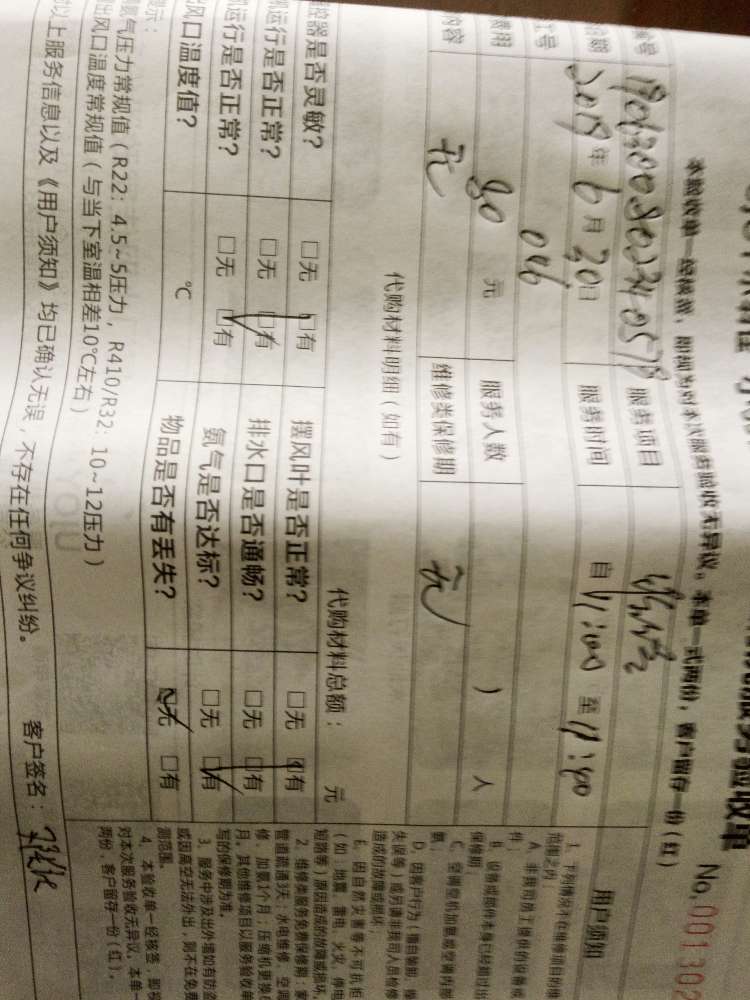 服务验收单
No.00130
本验收单一经核签,即视为对本次服务验收无异议。本单一式两份,客户留存一份(红)
服务项目 维修
2019年6月20日 服务时间 自11:00至11:00
工号 046
费用 80 元 服务人数 人
内容 无 维修类保修期 无
代购材料明细(如有)
代购材料总额: 元
控器是否灵敏? □无 □有 摆风叶是否正常? □无 □有
运行是否正常? □无 □有 排水口是否通畅? □无 □有
运行是否正常? □无 □有 氨气是否达标? □无 □有
风口温度值? ℃ 物品是否有丢失? □无 □有
提示:
氨气压力常规值(R22:4.5~5压力,R410/R32:10~12压力)
出风口温度常规值(与当下室温相差10℃左右)
以上服务信息以及《用户须知》均已确认无误,不存在任何争议纠纷。 客户签名:
用户须知
1. 下列情况不在维修项目的维
范围之内:
A. 非我司员工提供的设备或
件;
B. 设备或部件本身已经超过出
保修期;
C. 空调空机加氨或空调内部
氨;
D. 因客户行为(擅自装卸、操
失误等)或另请非我司人员检修
造成的故障或损坏;
E. 因自然灾害等不可抗拒
(如:地震、雷电、火灾、停电
短路等)原因造成的故障或损坏。
2. 维修类服务免费保修期:家
管道疏通3天;水电维修、空调
修、加氨1个月;压缩机更换
月。其他维修项目以服务验收单
写的保修期为准。
3. 服务中涉及出外墙如有防盗
或因高空无法外出,则不在免费
测范围。
4. 本验收单一经核签,即视
对本次服务验收无异议。本单一
两份,客户留存一份(红)。